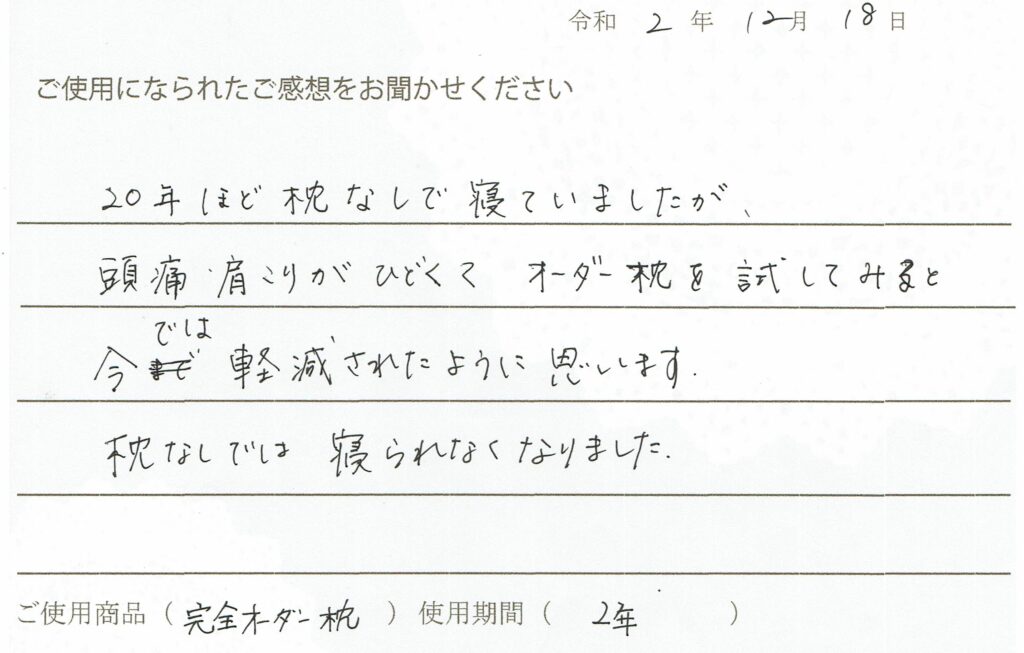 令和 2 年 12月 18日
ご使用になられたご感想をお聞かせください
20年ほど枕なしで寝ていましたが、
頭痛・肩こりがひどくて オーダー枕を試してみると
今では軽減されたように思います.
枕なしでは 寝られなくなりました.
ご使用商品（完全オーダー枕）使用期間（ 2年 ）